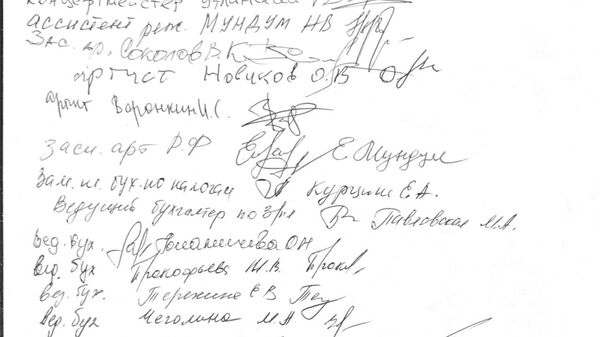 концертмейстер
ассистент реж. МУНДУМ НВ
Зас. ар. Соколов В.К
артист Новиков О.В
артист Воронкин И.С.
засл. арт Р.Ф Е. Мундум
Зам. гл. бух. по налогам Курцине Е.А.
Ведущий бухгалтер по з/пл Павловская М.А.
Вед. бух. ОН
Вед. бух Прокофьева М.В. Прокл
вед. бух. Терехина Е В Тер
вед. бух Чеголина М.А